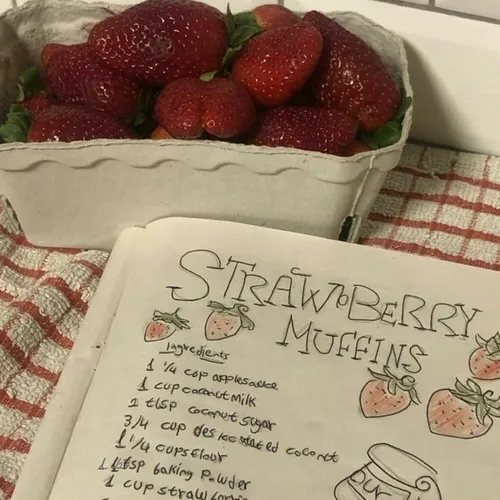 STRAWBERRY
MUFFINS
Ingredients
1 1/4 cup applesauce
1 cup coconut milk
2 tbsp coconut sugar
3/4 cup desiccated coconut
1 1/4 cups flour
1 tsp baking powder
1 cup strawberries